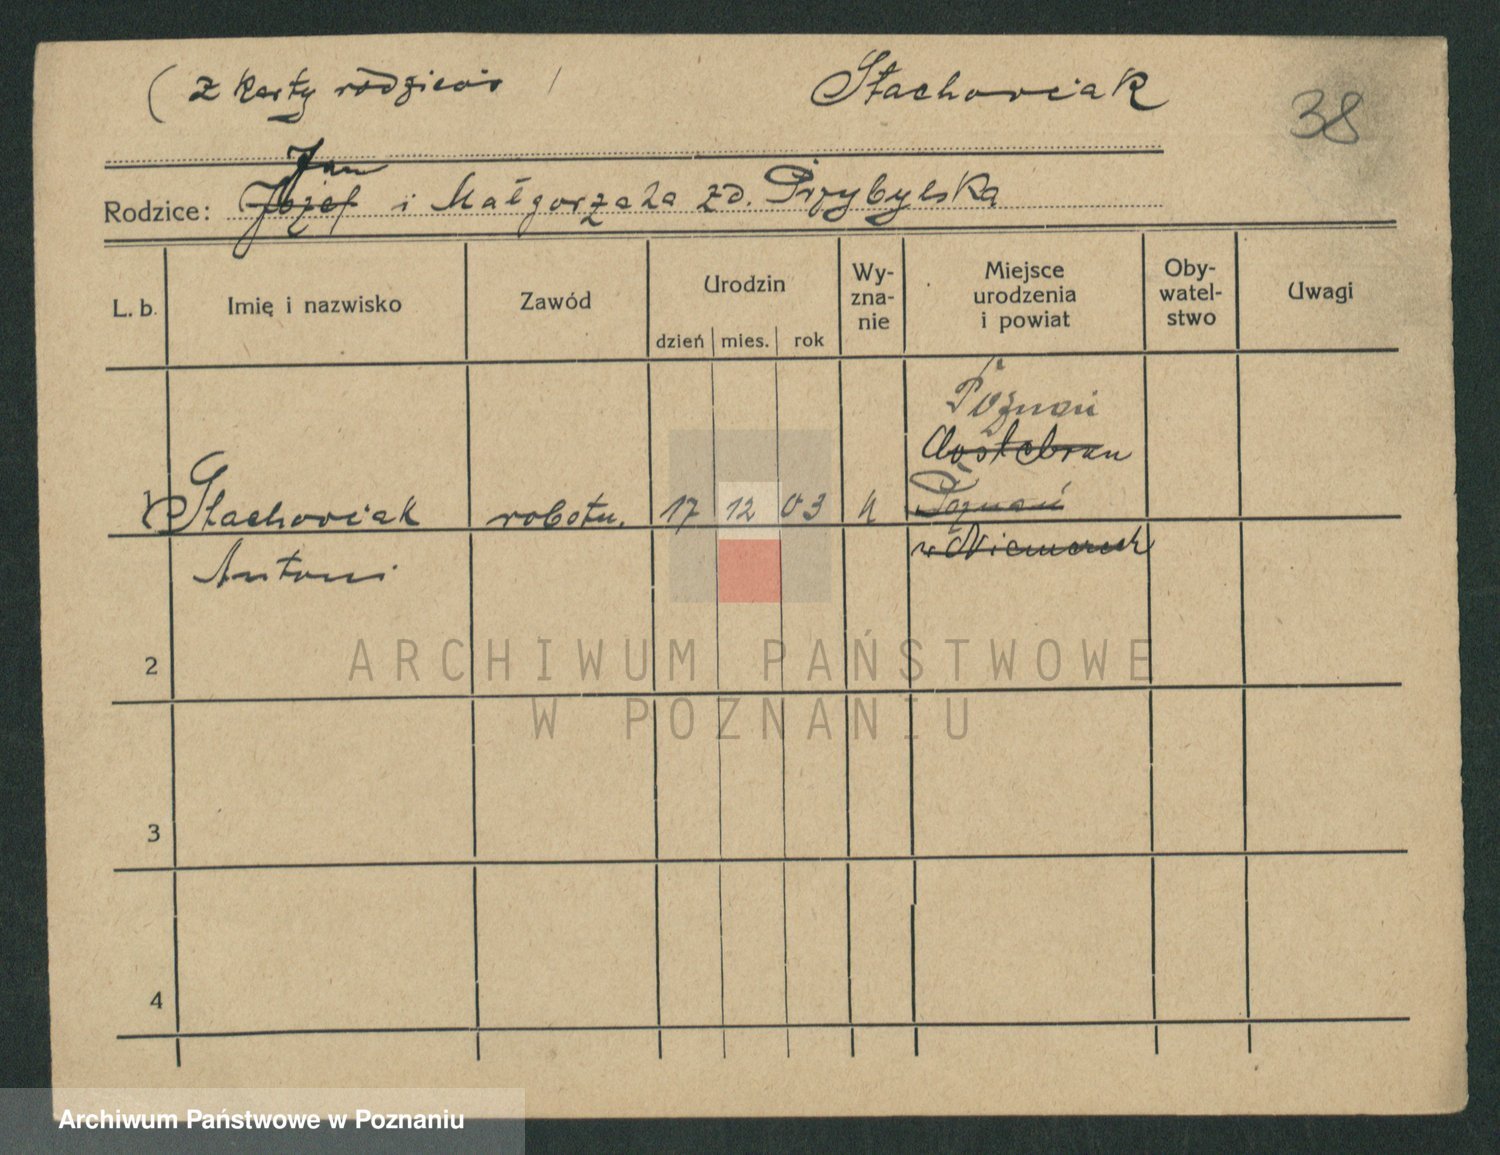 ( z karty rodziców /
Stachowiak
38
Jan
Rodzice: Józef i Małgorzata zd. Przybylska
L. b. Imię i nazwisko Zawód Urodzin Wy-zna-nie Miejsce urodzenia i powiat Oby-watel-stwo Uwagi
dzień mies. rok
Poznań
1 Stachowiak robotn. 17 12 03 k Poznań
Antoni w Niemczech
2
3
4
ARCHIWUM PAŃSTWOWE
W POZNANIU
Archiwum Państwowe w Poznaniu